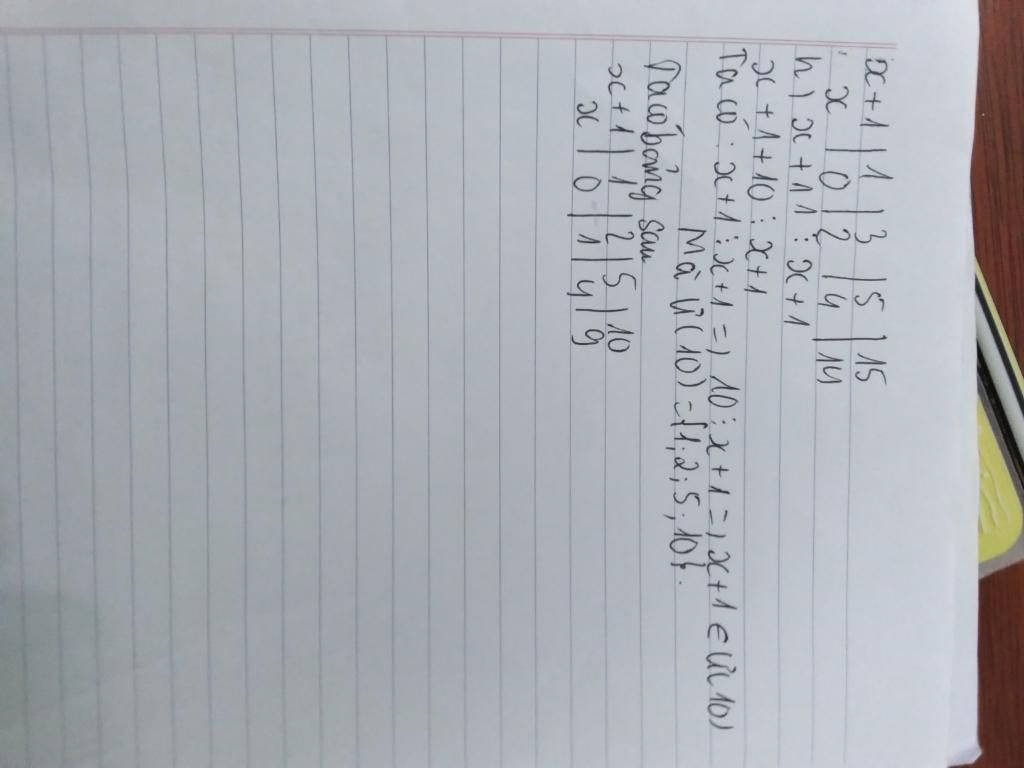 x+1 | 1 | 3 | 5 | 15
x | 0 | 2 | 4 | 14
h) x + 11 ⋮ x+1
x + 1 + 10 ⋮ x+1
Ta có : x+1 ⋮ x+1 =) 10 ⋮ x+1 =) x+1 ∈ Ư(10)
Mà Ư(10) = {1; 2; 5; 10}.
Ta có bảng sau
x+1 | 1 | 2 | 5 | 10
x | 0 | 1 | 4 | 9